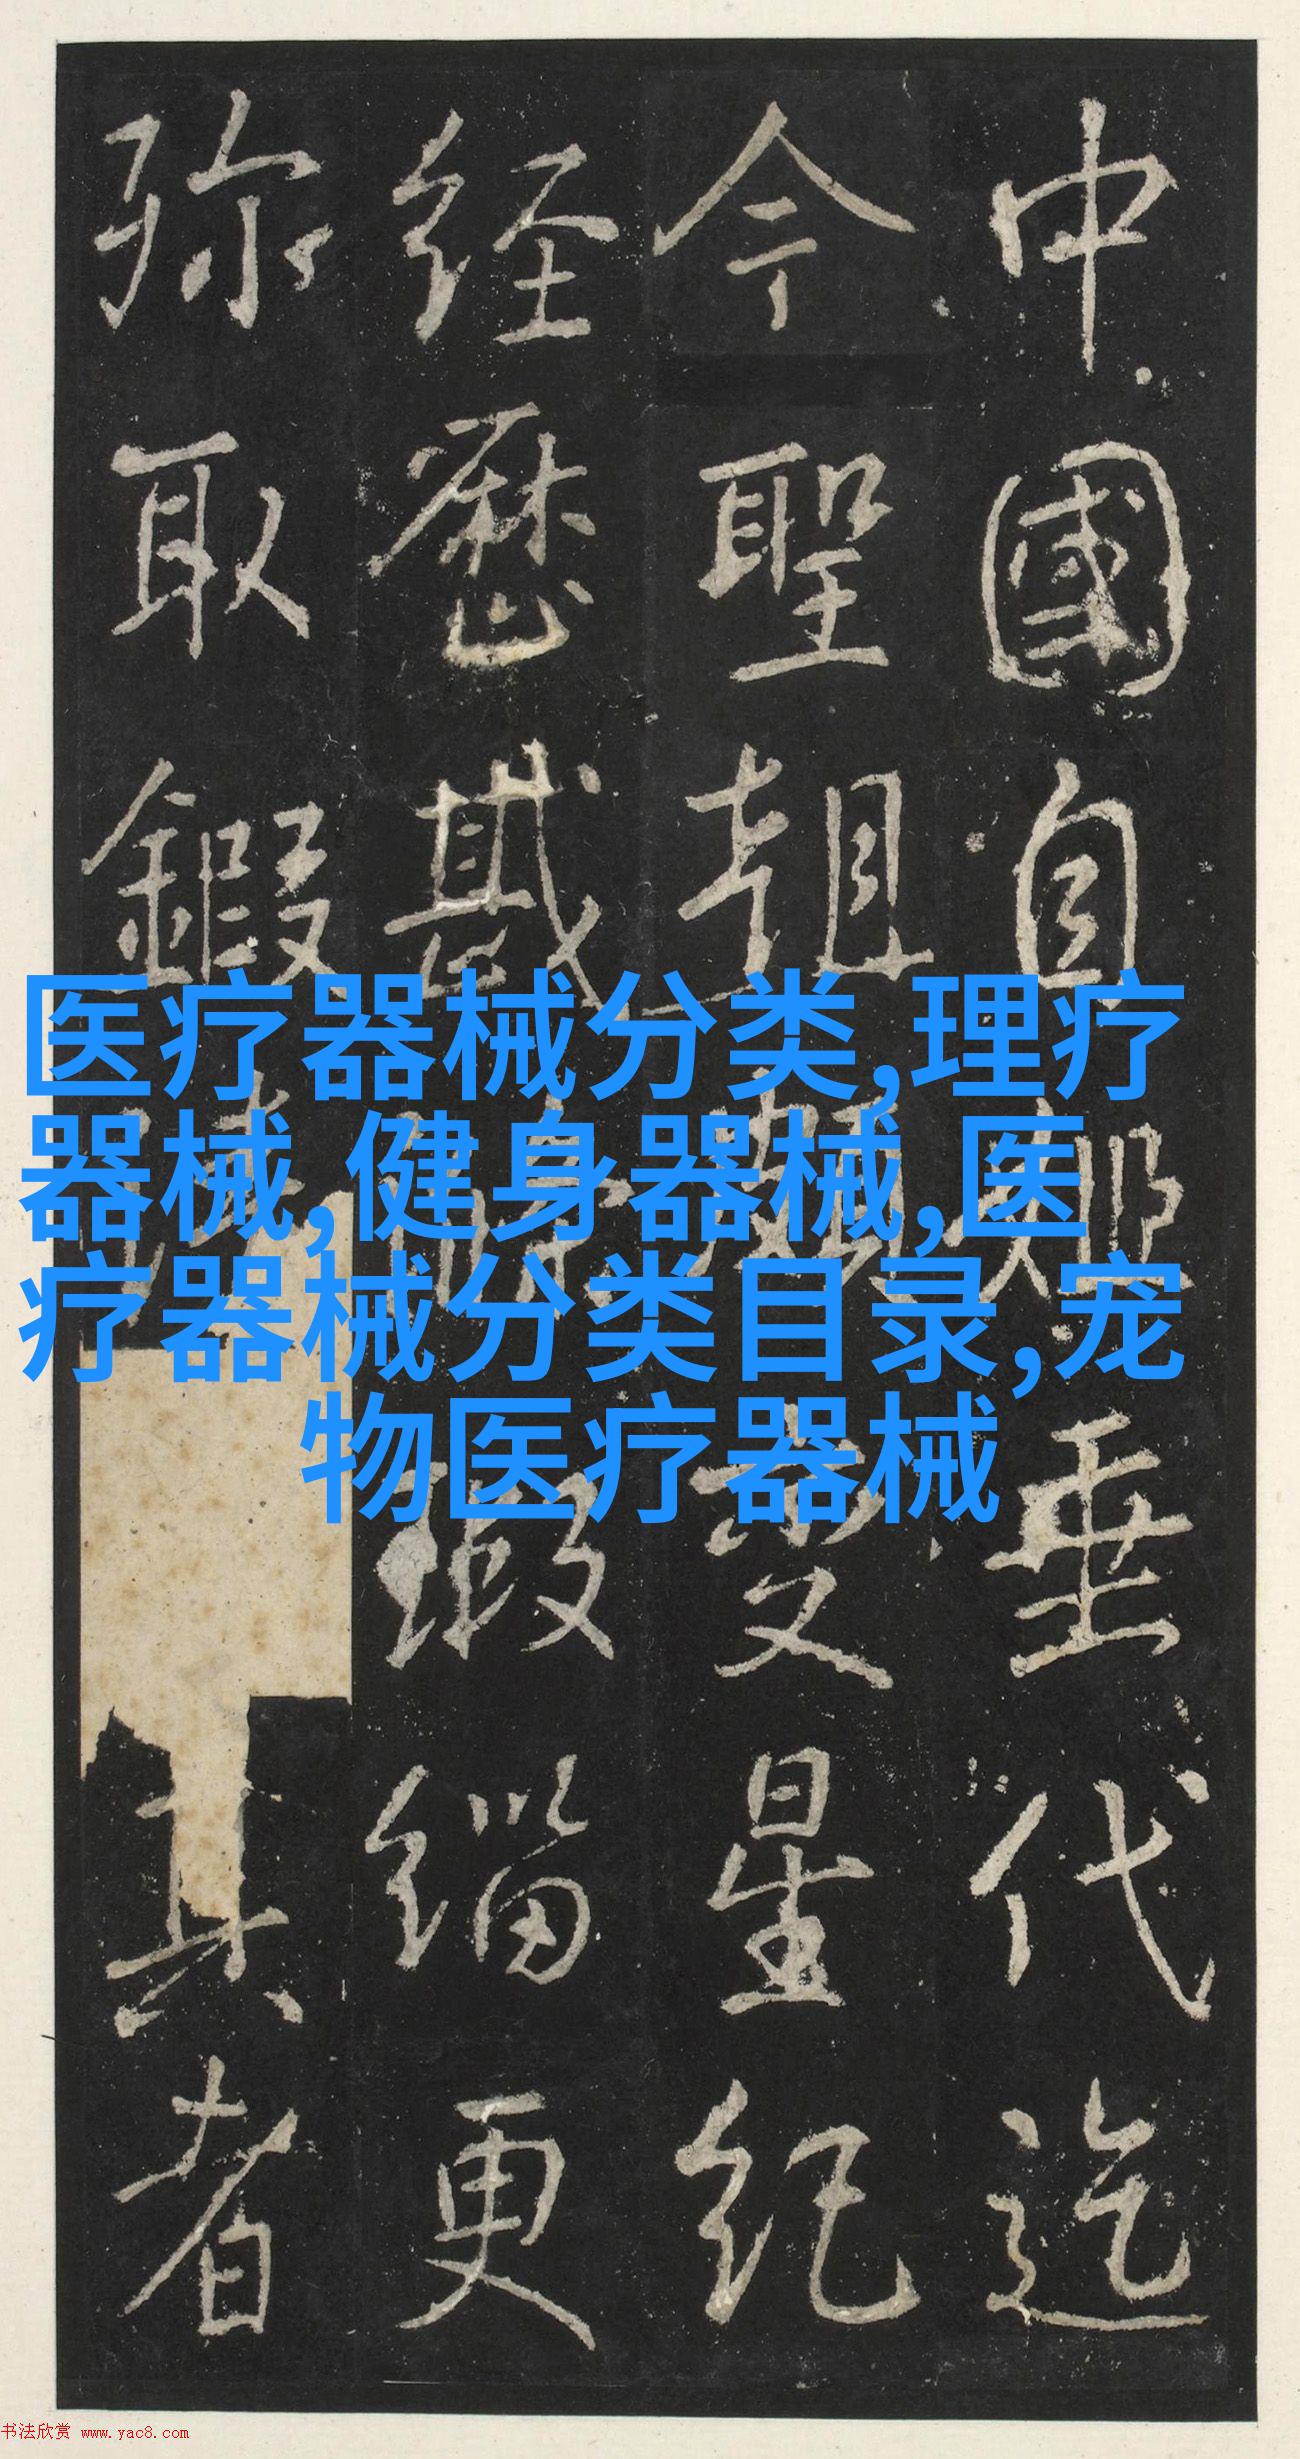 中國自垂代迄
今聖朝星紀
経歷緇更
弥取鍜真者
医疗器械分类,理疗
器械,健身器械,医
疗器械分类目录,宠
物医疗器械
书法欣赏 www.yac8.com